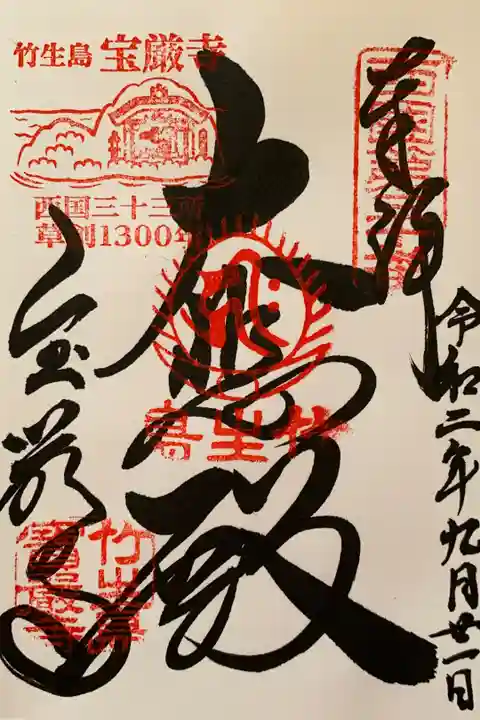 奉拝
令和二年九月廿一日
大悲殿
竹生島
宝厳寺
竹生島 宝厳寺
西国三十三所
草創1300年
竹生島
寶嚴寺